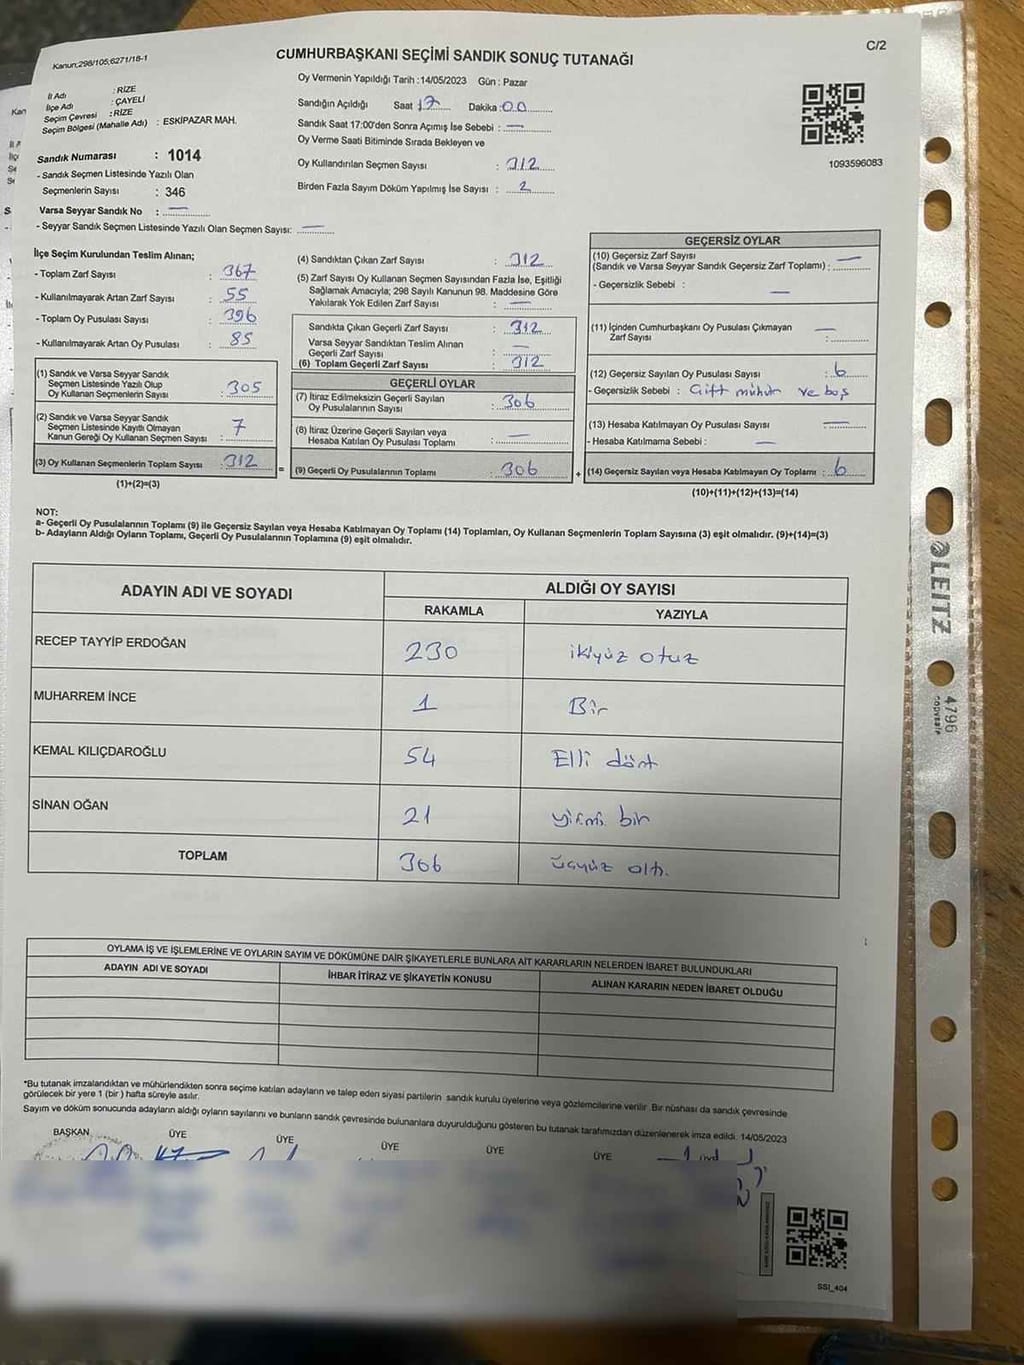 C/2
Kanun:298/105;6271/18-1
CUMHURBAŞKANI SEÇİMİ SANDIK SONUÇ TUTANAĞI
İl Adı : RİZE
İlçe Adı : ÇAYELİ
Seçim Çevresi : RİZE
Seçim Bölgesi (Mahalle Adı) : ESKİPAZAR MAH.
Sandık Numarası : 1014
- Sandık Seçmen Listesinde Yazılı Olan
Seçmenlerin Sayısı : 346
Varsa Seyyar Sandık No : —
- Seyyar Sandık Seçmen Listesinde Yazılı Olan Seçmen Sayısı: —
Oy Vermenin Yapıldığı Tarih : 14/05/2023 Gün : Pazar
Sandığın Açıldığı Saat 17 Dakika : 00
Sandık Saat 17:00'den Sonra Açımış İse Sebebi : —
Oy Verme Saati Bitiminde Sırada Bekleyen ve
Oy Kullandırılan Seçmen Sayısı : 312
Birden Fazla Sayım Döküm Yapılmış İse Sayısı : 2
1093596083
İlçe Seçim Kurulundan Teslim Alınan;
- Toplam Zarf Sayısı : 367
- Kullanılmayarak Artan Zarf Sayısı : 55
- Toplam Oy Pusulası Sayısı : 396
- Kullanılmayarak Artan Oy Pusulası : 85
(1) Sandık ve Varsa Seyyar Sandık
Seçmen Listesinde Yazılı Olup
Oy Kullanan Seçmenlerin Sayısı : 305
(2) Sandık ve Varsa Seyyar Sandık
Seçmen Listesinde Kayıtlı Olmayan
Kanun Gereği Oy Kullanan Seçmen Sayısı : 7
(3) Oy Kullanan Seçmenlerin Toplam Sayısı : 312
(1)+(2)=(3)
(4) Sandıktan Çıkan Zarf Sayısı : 312
(5) Zarf Sayısı Oy Kullanan Seçmen Sayısından Fazla İse, Eşitliği
Sağlamak Amacıyla; 298 Sayılı Kanunun 98. Maddesine Göre
Yakılarak Yok Edilen Zarf Sayısı : —
Sandıkta Çıkan Geçerli Zarf Sayısı : 312
Varsa Seyyar Sandıktan Teslim Alınan
Geçerli Zarf Sayısı : —
(6) Toplam Geçerli Zarf Sayısı : 312
GEÇERLİ OYLAR
(7) İtiraz Edilmeksizin Geçerli Sayılan
Oy Pusulalarının Sayısı : 306
(8) İtiraz Üzerine Geçerli Sayılan veya
Hesaba Katılan Oy Pusulası Toplamı : —
= (9) Geçerli Oy Pusulalarının Toplamı : 306
GEÇERSİZ OYLAR
(10) Geçersiz Zarf Sayısı
(Sandık ve Varsa Seyyar Sandık Geçersiz Zarf Toplamı) : —
- Geçersizlik Sebebi : —
(11) İçinden Cumhurbaşkanı Oy Pusulası Çıkmayan
Zarf Sayısı : —
(12) Geçersiz Sayılan Oy Pusulası Sayısı : 6
- Geçersizlik Sebebi : Çift mühür ve boş
(13) Hesaba Katılmayan Oy Pusulası Sayısı : —
- Hesaba Katılmama Sebebi : —
+ (14) Geçersiz Sayılan veya Hesaba Katılmayan Oy Toplamı : 6
(10)+(11)+(12)+(13)=(14)
NOT:
a- Geçerli Oy Pusulalarının Toplamı (9) ile Geçersiz Sayılan veya Hesaba Katılmayan Oy Toplamı (14) Toplamları, Oy Kullanan Seçmenlerin Toplam Sayısına (3) eşit olmalıdır. (9)+(14)=(3)
b- Adayların Aldığı Oyların Toplamı, Geçerli Oy Pusulalarının Toplamına (9) eşit olmalıdır.
ADAYIN ADI VE SOYADI ALDIĞI OY SAYISI
RAKAMLA YAZIYLA
RECEP TAYYİP ERDOĞAN 230 ikiyüz otuz
MUHARREM İNCE 1 Bir
KEMAL KILIÇDAROĞLU 54 Elli dört
SİNAN OĞAN 21 yirmi bir
TOPLAM 306 üçyüz altı.
OYLAMA İŞ VE İŞLEMLERİNE VE OYLARIN SAYIM VE DÖKÜMÜNE DAİR ŞİKAYETLERLE BUNLARA AİT KARARLARIN NELERDEN İBARET BULUNDUKLARI
ADAYIN ADI VE SOYADI İHBAR İTİRAZ VE ŞİKAYETİN KONUSU ALINAN KARARIN NEDEN İBARET OLDUĞU
*Bu tutanak imzalandıktan ve mühürlendikten sonra seçime katılan adayların ve talep eden siyasi partilerin sandık kurulu üyelerine veya gözlemcilerine verilir. Bir nüshası da sandık çevresinde
görülecek bir yere 1 (bir) hafta süreyle asılır.
Sayım ve döküm sonucunda adayların aldığı oyların sayılarını ve bunların sandık çevresinde bulunanlara duyurulduğunu gösteren bu tutanak tarafımızdan düzenlenerek imza edildi. 14/05/2023
BAŞKAN ÜYE ÜYE ÜYE ÜYE ÜYE
SSI_404
LEITZ
4796
copysafe